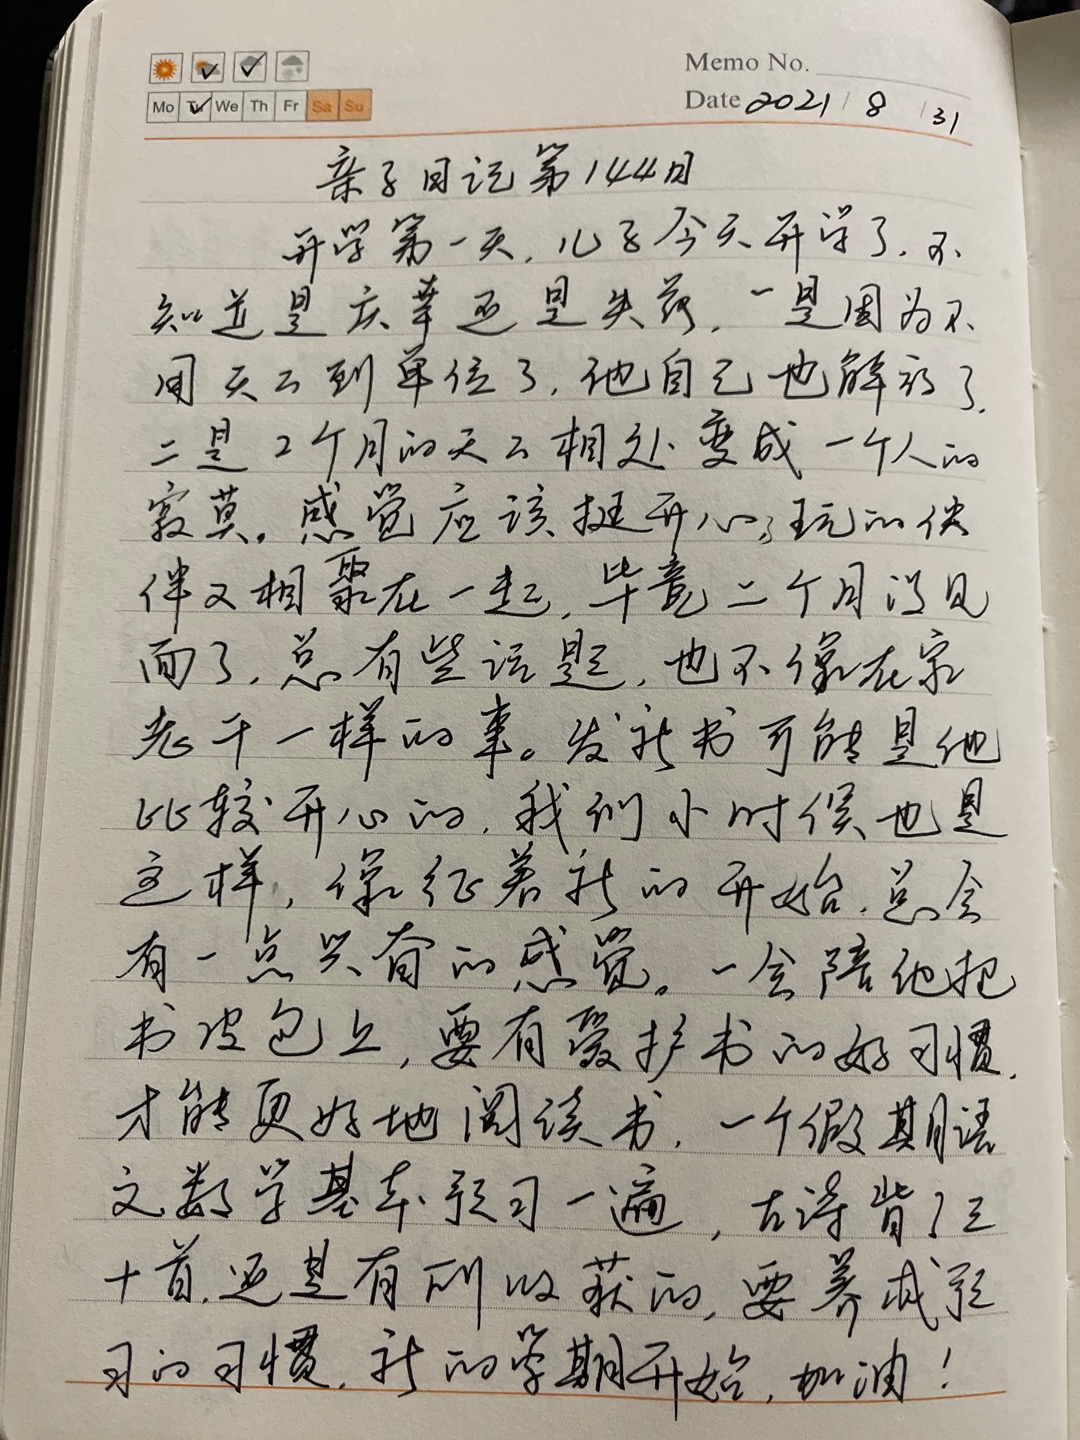 Memo No.
Mo Tu We Th Fr Sa Su
Date 2021 / 8 / 31
亲子日记第144日
开学第一天，儿子今天开学了，不
知道是庆幸还是失落，一是因为不
用天天到单位了，他自己也解放了，
二是2个月的天天相处变成一个人的
寂莫。感觉应该挺开心，玩的伙
伴又相聚在一起，毕竟二个月没见
面了，总有些话题，也不像在家
老干一样的事。发新书可能是他
比较开心的，我们小时候也是
这样，像征着新的开始，总会
有一点兴奋的感觉。一会陪他把
书皮包上，要有爱护书的好习惯，
才能更好地阅读书，一个假期语
文数学基本预习一遍，古诗背了三
十首，还是有所收获的，要养成预
习的习惯，新的学期开始，加油！